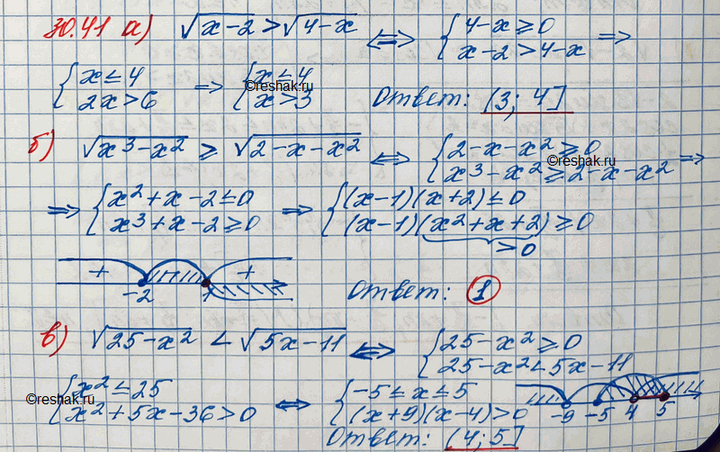 30.41 а) √(x-2) > √(4-x) ⇔ { 4-x ≥ 0
x-2 > 4-x ⇒
{ x ≤ 4
2x > 6 ⇒ { x ≤ 4
x > 3 Ответ: (3; 4]
©reshak.ru
б) √(x³-x²) ≥ √(2-x-x²) ⇔ { 2-x-x² ≥ 0
x³-x² ≥ 2-x-x² ⇒
©reshak.ru
⇒ { x²+x-2 ≤ 0
x³+x-2 ≥ 0 ⇒ { (x-1)(x+2) ≤ 0
(x-1)(x²+x+2) ≥ 0
>0
+ +
-2 1 Ответ: 1
в) √(25-x²) < √(5x-11) ⇔ { 25-x² ≥ 0
25-x² < 5x-11
{ x² ≤ 25
x²+5x-36 > 0 ⇔ { -5 ≤ x ≤ 5
(x+9)(x-4) > 0
©reshak.ru
-9 -5 4 5
Ответ: (4; 5]